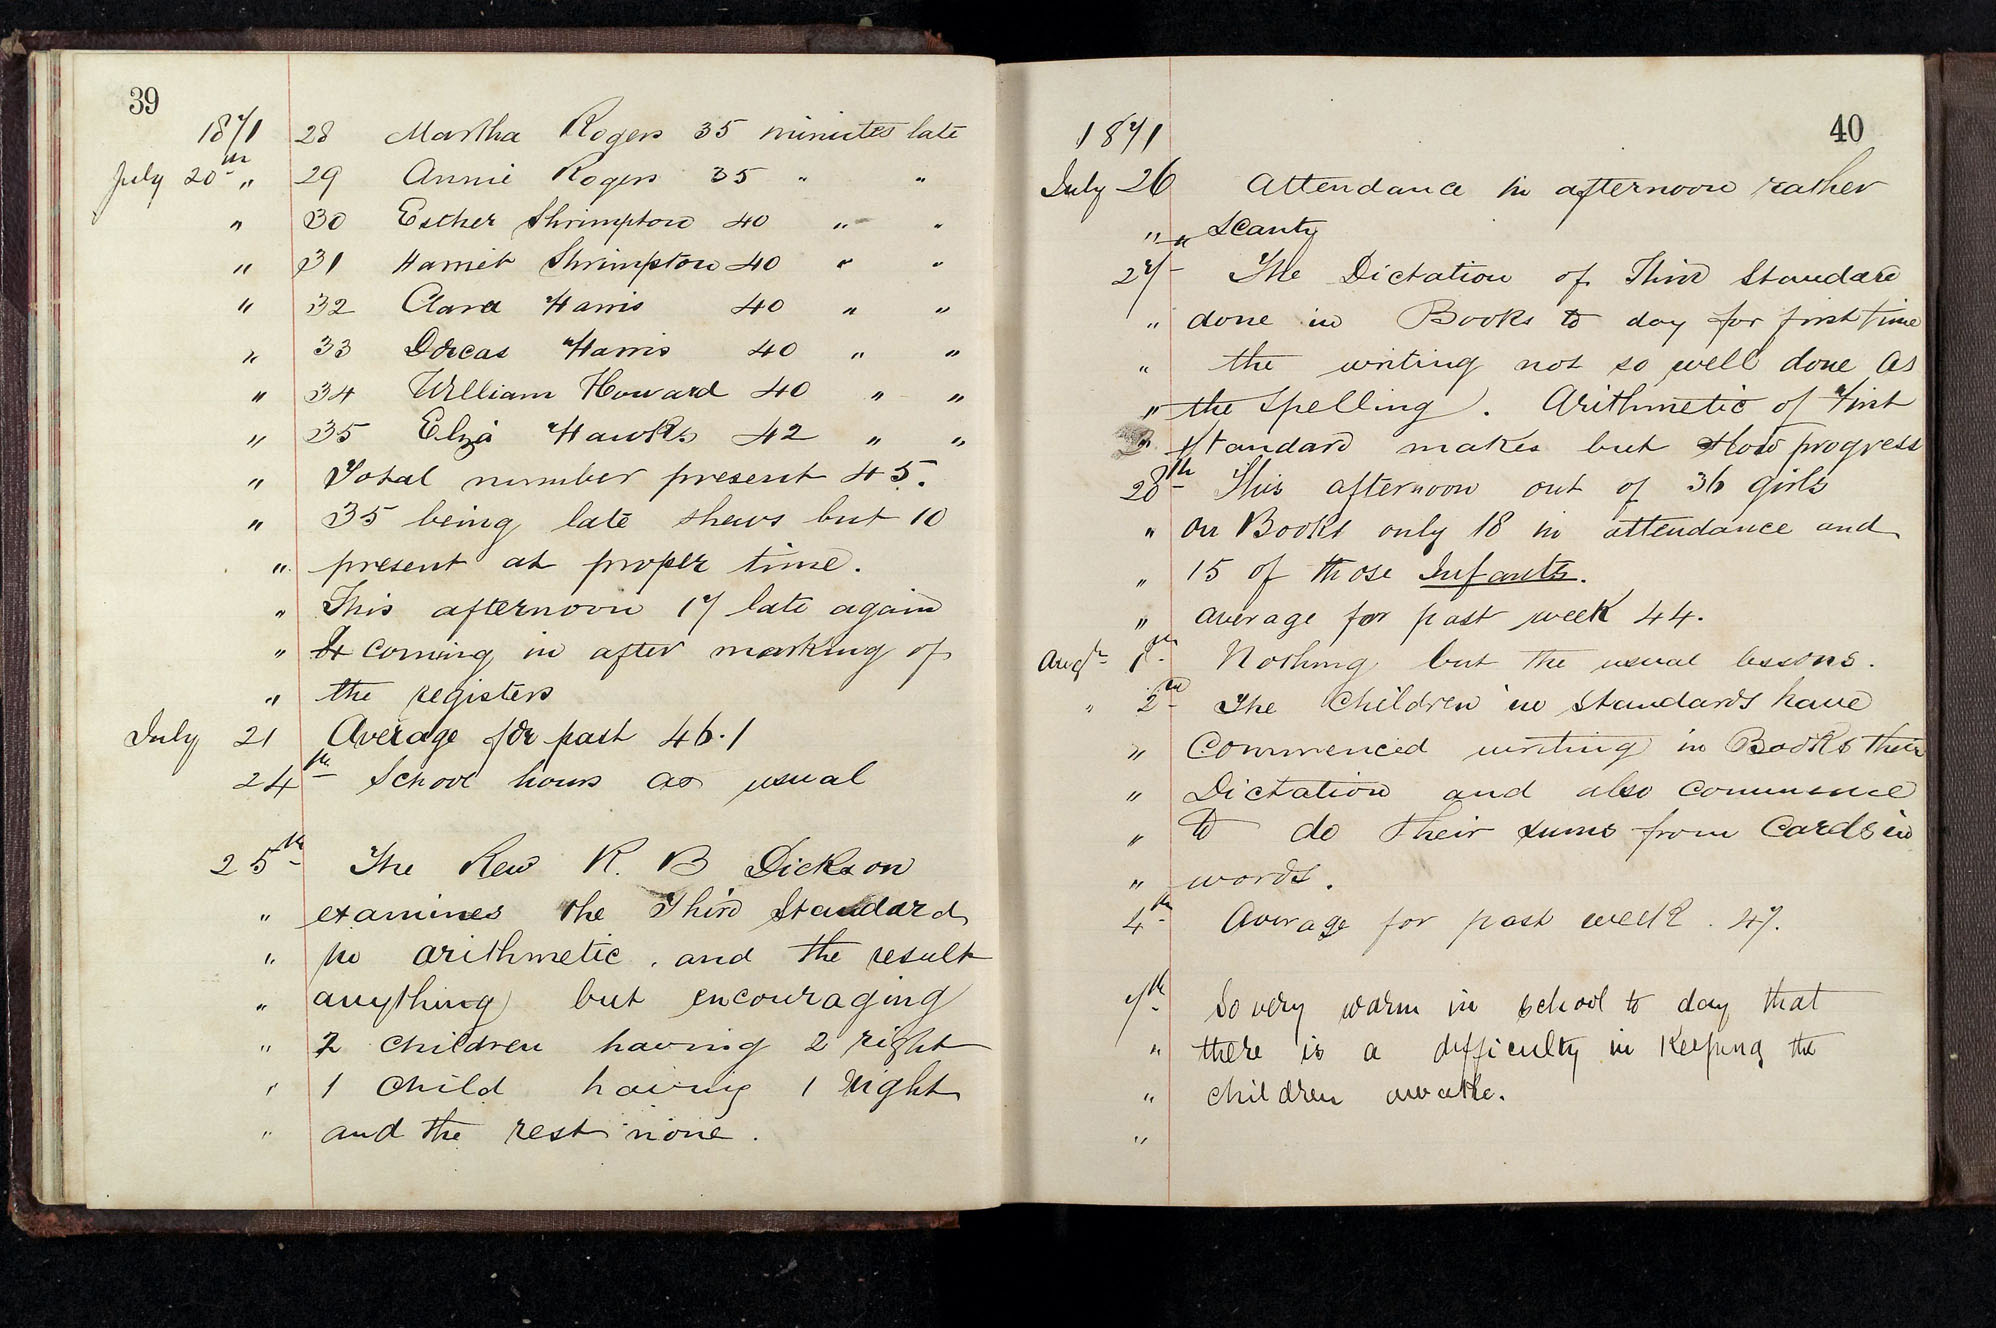 39
1871 28 Martha Rogers 35 minutes late
July 20th " 29 Annie Rogers 35 " "
" 30 Esther Shrimpton 40 " "
" 31 Harriet Shrimpton 40 " "
" 32 Clara Harris 40 " "
" 33 Dorcas Harris 40 " "
" 34 William Howard 40 " "
" 35 Eliza Hawks 42 " "
" Total number present 45.
" 35 being late shews but 10
" present at proper time.
" This afternoon 17 late again
" 4 coming in after marking of
" the registers
July 21 Average for past 46.1
24th School hours as usual
25th The Rev R. B Dickson
" examines the Third Standard
" in arithmetic. and the result
" anything but encouraging
" 2 children having 2 right
" 1 child having 1 right
" and the rest none.
40
1871
July 26 Attendance in afternoon rather
" " scanty
27 The Dictation of Third Standard
" done in Books to day for first time
" the writing not so well done as
" the spelling. Arithmetic of First
" Standard makes but slow progress
28th This afternoon out of 36 girls
" on Books only 18 in attendance and
" 15 of those Infants.
" average for past week 44.
Augt 1st Nothing but the usual lessons.
" 2nd The Children in Standards have
" Commenced writing in Books their
" Dictation and also commence
" to do their sums from Cards in
" words.
4th Average for past week. 47.
7th So very warm in school to day that
" there is a difficulty in keeping the
" children awake.
"